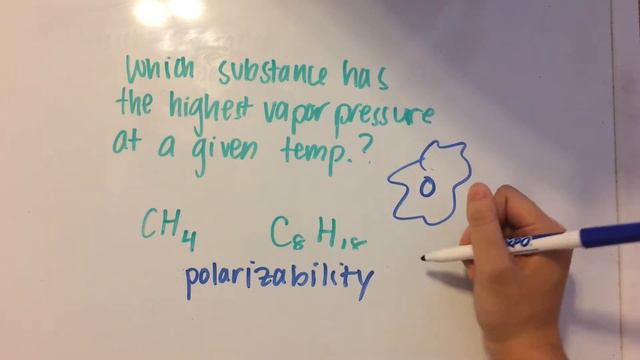 which substance has
the highest vapor pressure
at a given temp.?
CH₄ C₈H₁₈
polarizability
EXPO